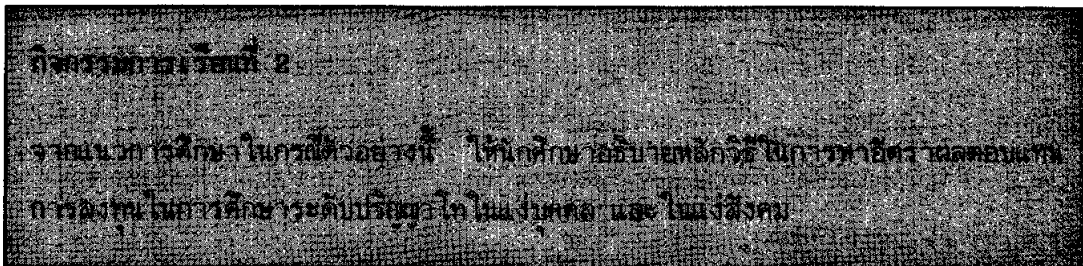 กิจกรรมการเรียนที่ 2
จากแนวการศึกษาในกรณีตัวอย่างนี้ ให้นักศึกษาอธิบายหลักวิธีในการหาอัตราผลตอบแทน
การลงทุนในการศึกษาระดับปริญญาโทในแง่บุคคล และในแง่สังคม